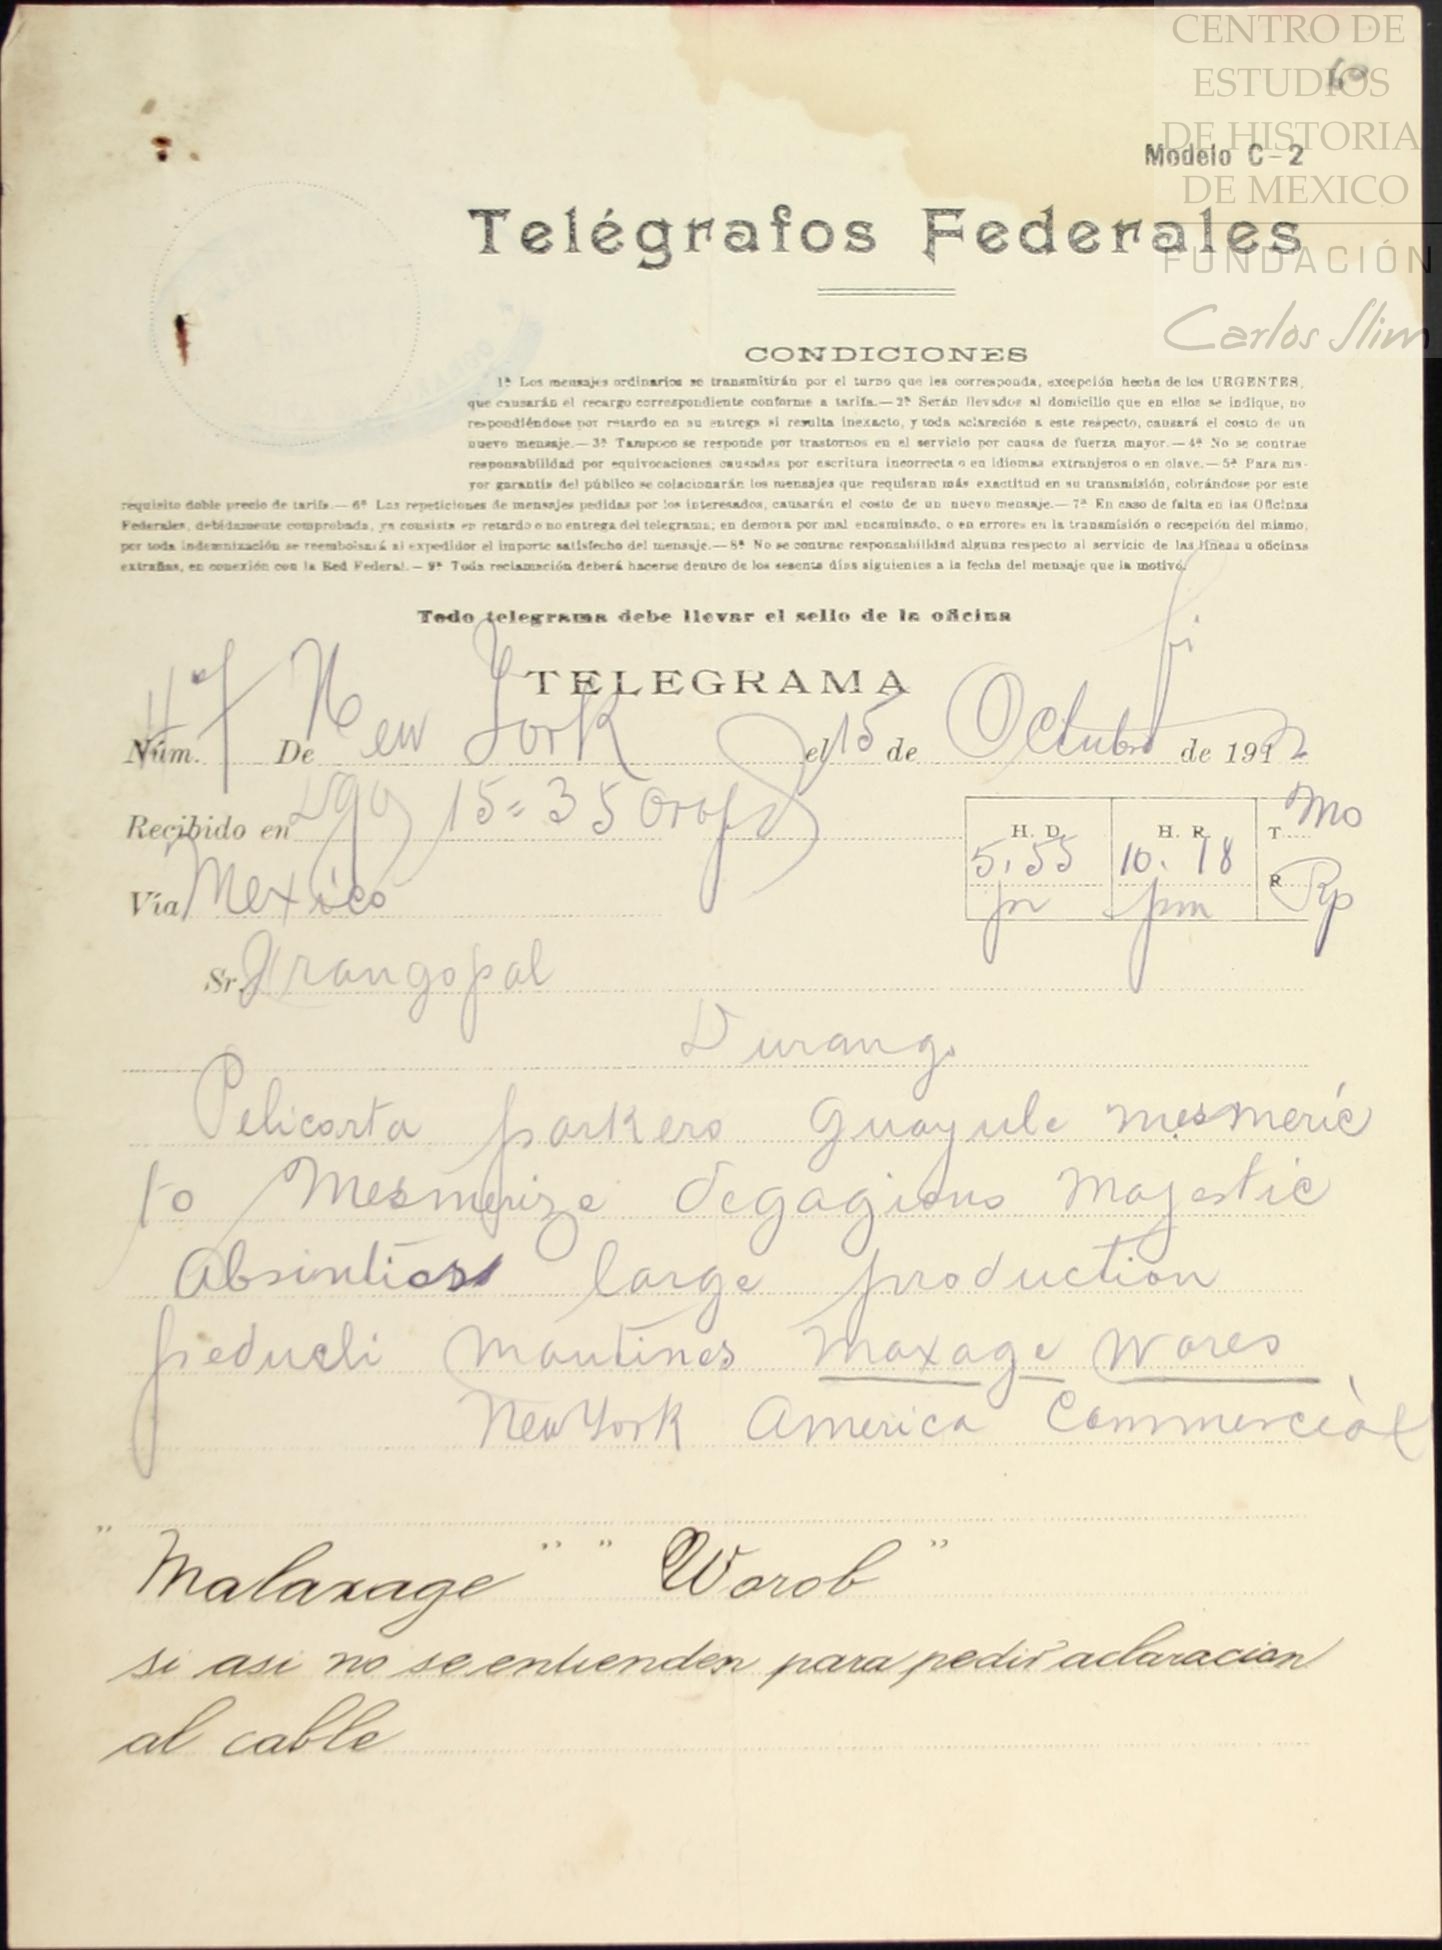 CENTRO DE
ESTUDIOS
DE HISTORIA
DE MEXICO
FUNDACIÓN
Carlos Slim
60
Modelo C-2
Telégrafos Federales
CONDICIONES
1ª Los mensajes ordinarios se transmitirán por el turno que les corresponda, excepción hecha de los URGENTES,
que causarán el recargo correspondiente conforme a tarifa.—2ª Serán llevados al domicilio que en ellos se indique, no
respondiéndose por retardo en su entrega si resulta inexacto, y toda aclaración a este respecto, causará el costo de un
nuevo mensaje.—3ª Tampoco se responde por trastornos en el servicio por causa de fuerza mayor.—4ª No se contrae
responsabilidad por equivocaciones causadas por escritura incorrecta o en idiomas extranjeros o en clave.—5ª Para ma-
yor garantía del público se colacionarán los mensajes que requieran más exactitud en su transmisión, cobrándose por este
requisito doble precio de tarifa.—6ª Las repeticiones de mensajes pedidas por los interesados, causarán el costo de un nuevo mensaje.—7ª En caso de falta en las Oficinas
Federales, debidamente comprobada, ya consista en retardo o no entrega del telegrama; en demora por mal encaminado, o en errores en la transmisión o recepción del mismo,
por toda indemnización se reembolsará al expedidor el importe satisfecho del mensaje.—8ª No se contrae responsabilidad alguna respecto al servicio de las líneas u oficinas
extrañas, en conexión con la Red Federal.—9ª Toda reclamación deberá hacerse dentro de los sesenta días siguientes a la fecha del mensaje que la motivó.
Todo telegrama debe llevar el sello de la oficina
TELEGRAMA
Núm. 47 De New York el 15 de Octubre de 1912
Recibido en Dgo 15= 35
H. D. 5.55 H. R. 10.18 pm T. Mo R. Rp
Vía Mexico
Sr. Frangopal
Durango
Pelicarta parkers guayule mesmeric
to Mesmerize degagions majestic
Absintias large production
peducli mautines maxage wares
New York America Commercial
"Malaxage" "Worob"
si asi no se entienden para pedir aclaracion
al cable